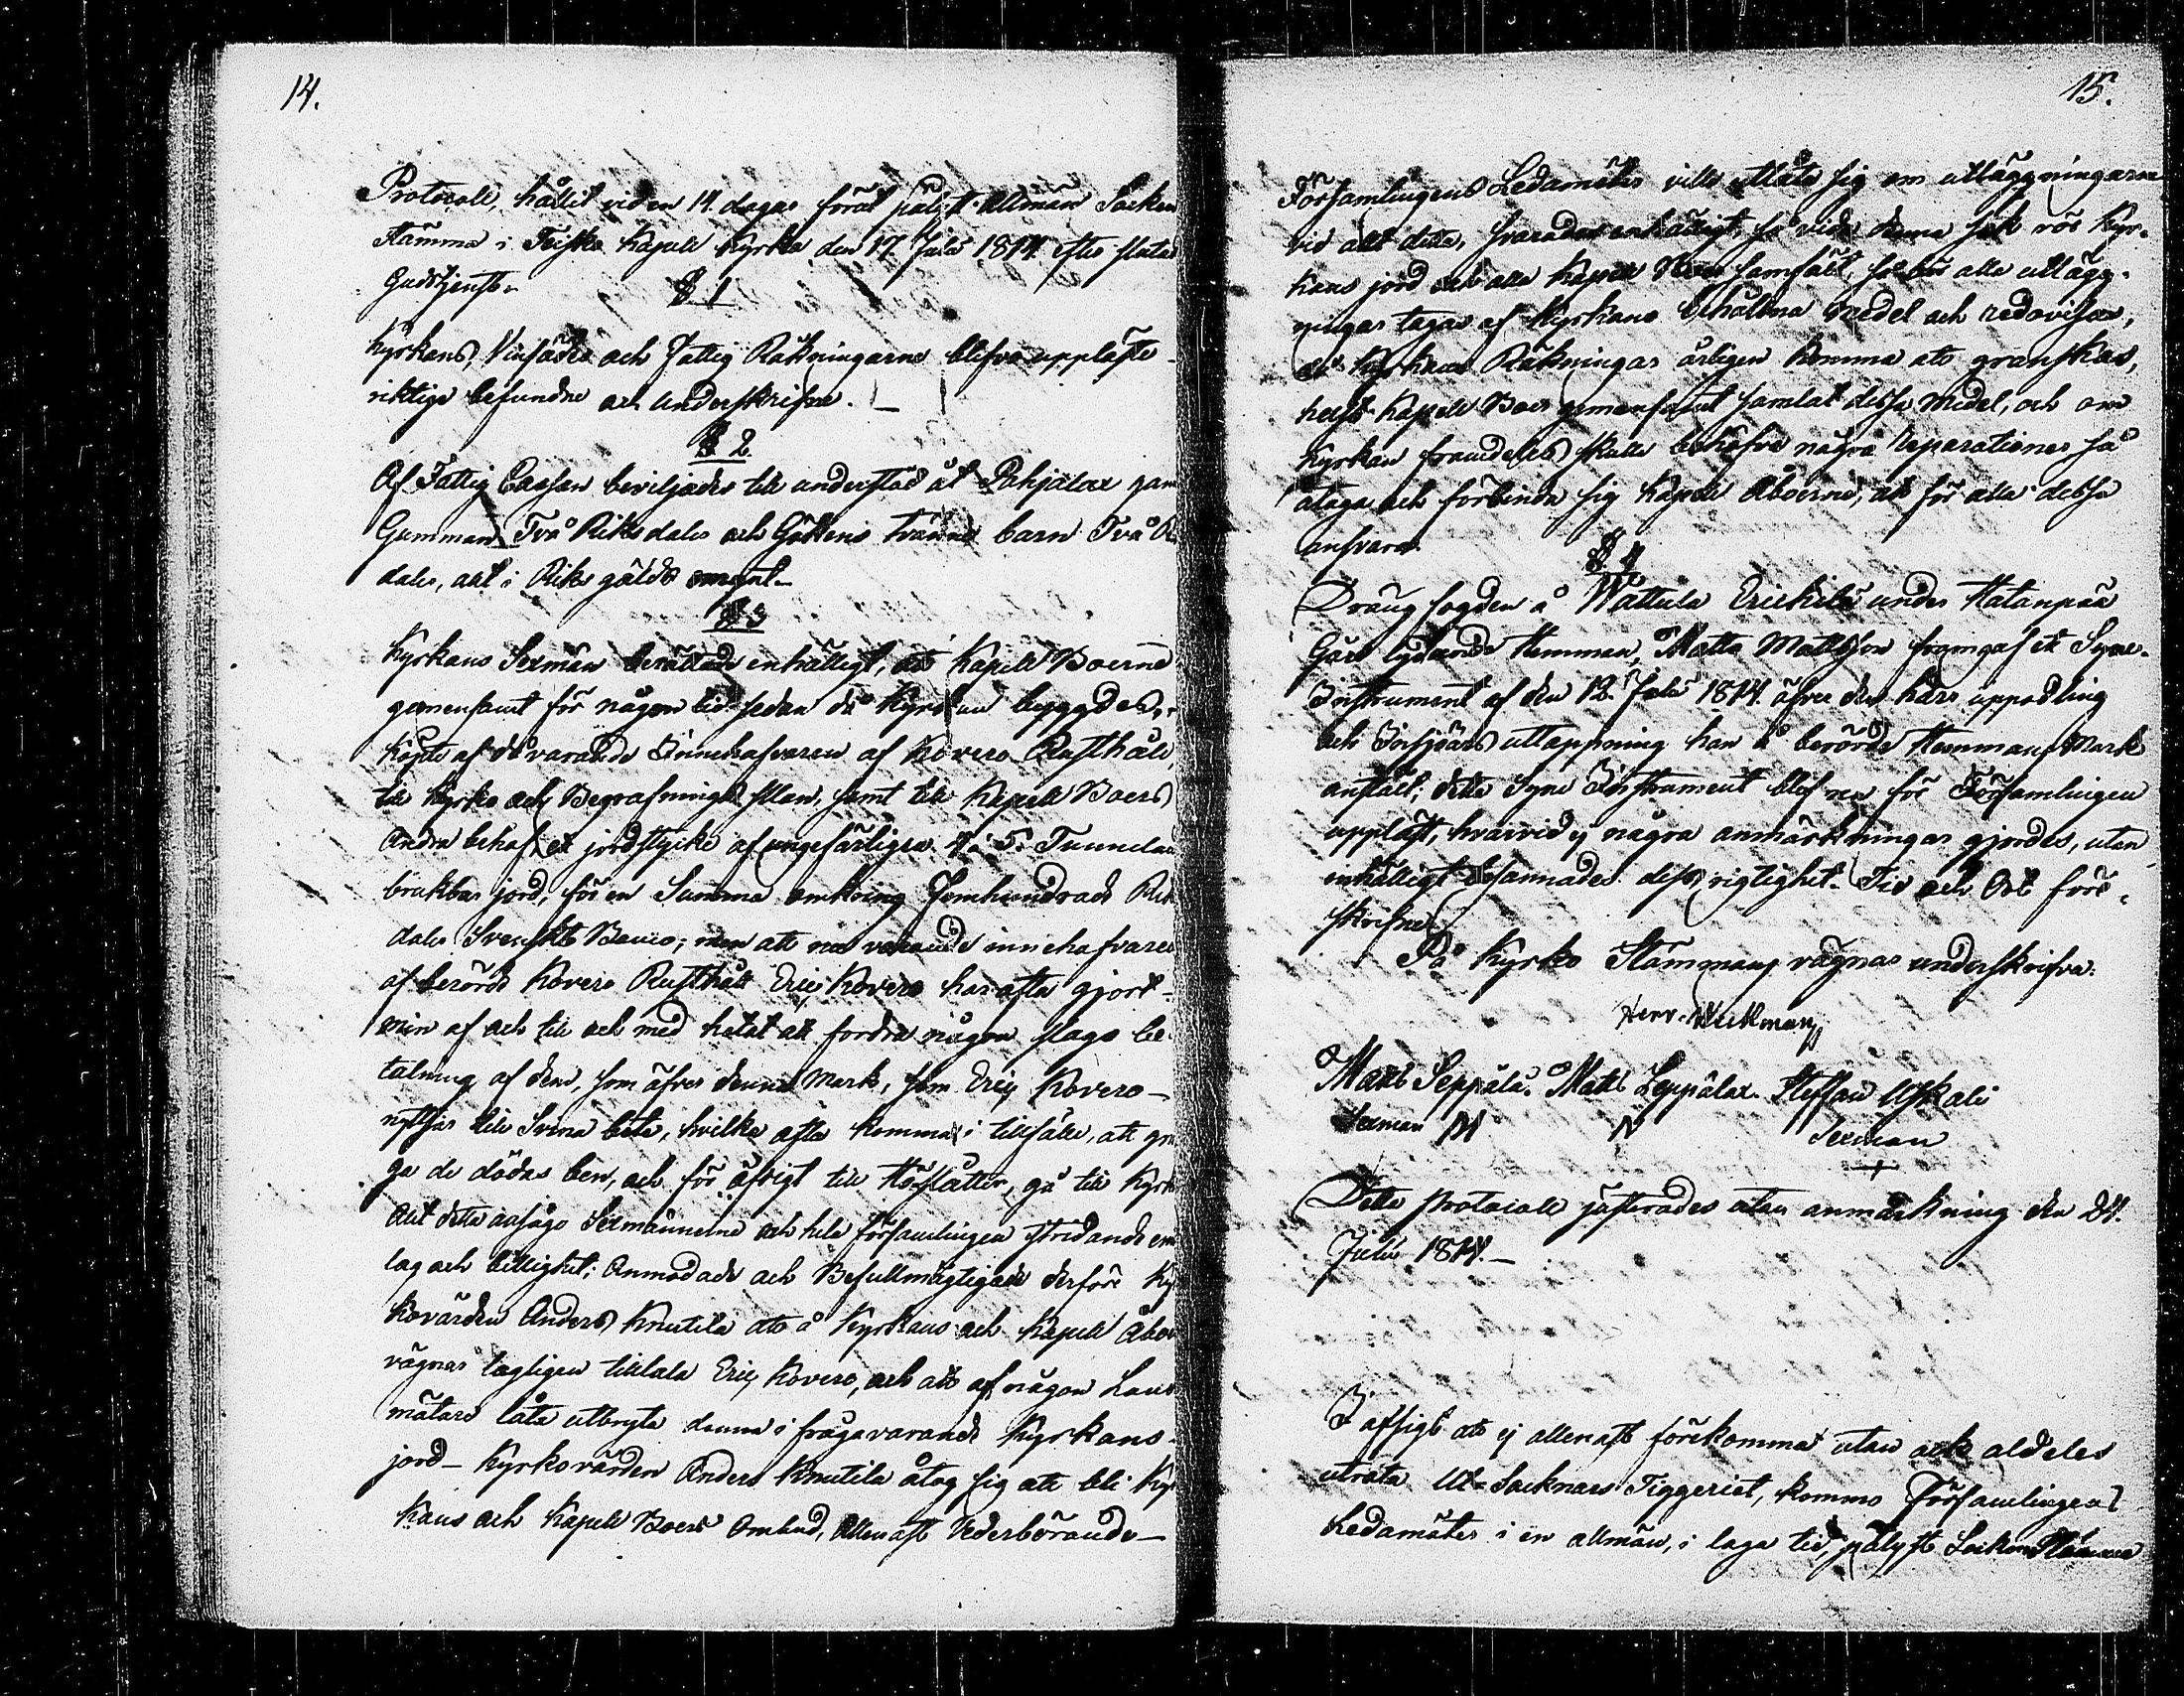 14.
Protocoll, hållit vid en 14 dagar förut pålyst Allmän Socken
Stämma i Teisko Kapell Kyrka den 17 Julii 1814 efter slutad
Gudstjenst.
§ 1
Kyrkans, Vinsädes och Fattig Räkningarne blefvo uppläste
riktige befundne och underskrifne.
§ 2
Af Fattig Cassan beviljades till understöd åt Pohjalax gam
Gumman Två Riksdaler och Götkens tvänne barn Två R
daler, allt i Riks gälds mynt.
§ 3
Kyrkans Sexmän berättade enhälligt, att Kapell Boerne
gemensamt för någon tid sedan då Kyrkan byggdes,
köpte af då varande Innehafvaren af Kovero Rusthåll,
till Kyrko och Begrafnings plan, samt till Kapell Boers
Andra behof, et jordstycke af ungefärligen 4 à 5 Tunneland
brukbar jord, för en Summa omkring Femhundrade Riks
daler Svenskt Banco; men att nu varande innehafvaren
af berörde Kovero Rusthåll Eric Kovero har ofta gjort
min af och till och med hotat att fordra någon slags be-
talning af dem, som öfver denna Mark, som Eric Kovero
nyttjar till Svina bete, hvilka ofta komma i tillfälle, att gn
ga de dödas ben, och för öfrigt till Höslåtter, gå till Kyrk
Allt detta ansågo Sexmännerne och hela församlingen stridande em
lag och billighet; Anmodade och Befullmägtigade derföre Ky
kovärden Anders Knutila att å Kyrkans och Kapell Åboer
vägnar lagligen tilltala Eric Kovero, och att af någon Land
mätare låta utbryta denna i frågavarande Kyrkans
jord – Kyrkovärden Anders Knutila åtog sig att bli Kyr
kans och Kapell Boers Ombud, Allenast Vederbörande
15.
Församlingens Ledamöter ville utlåta sig om utläggningarne
vid allt detta, svarades enhälligt, så vida denna sak rör Kyr-
kans jord och alla Kapell Boer samfält, så bör alla utlägg-
ningar tagas af Kyrkans behållna Medel och redovisas,
då Kyrkans Räkningar årligen komma att granskas,
helst Kapell Boer gemensamt samlat dessa Medel, och om
Kyrkan framdeles skulle behöfva några reparationer så
åtaga och förbinda sig Kapell Åboerne, att för alla dessa
ansvara.
§ 4
Dräng fogden å Wattula Erickilä under Hatanpää
Gård lydande Hemman, Matts Mattsson framgaf ett Syne-
Instrument af den 12 Julii 1814 öfver den kärr uppodling
och Insjöars uttappning han å berörde Hemmans Mark
anställt; detta Syne Instrument blef nu för Församlingen
uppläst, hvarvid ej några anmärkningar gjordes, utan
enhälligt besannades dess rigtighet. Tid och Ort före-
skrifne.
På Kyrko Stämmans vägnar underskrifva.
Matts Seppälä. Matts Leppälax. Steffan Uskali
Sexman
Sexman
Detta protocoll justerades utan anmärkning den 24.
Julii 1814.
I afsigt att ej allenast förekomma utan ock aldeles
utrota Ut-Socknars Tiggeriet, kommo Församlingens
Ledamöter i en allmän, i laga tid, pålyst Sockne Stämma